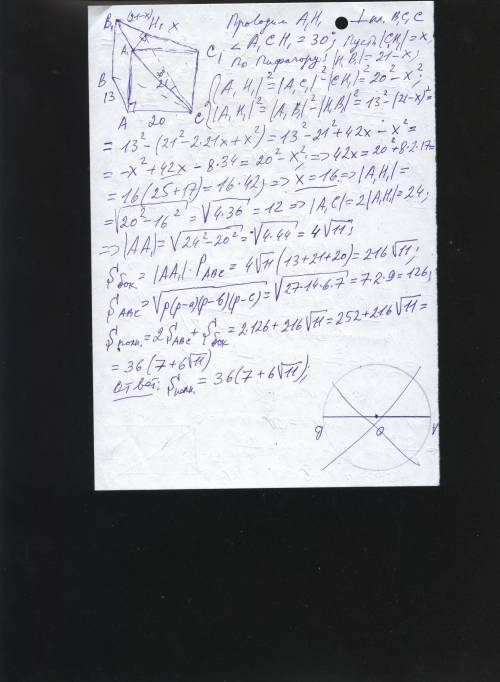 Проводим A₁H₁ ⊥ пл. B₁C₁C
∠A₁CH₁ = 30°; Пусть |C₁H₁| = x,
По Пифагору: |H₁B₁| = 21 - x;
{|A₁H₁|² = |A₁C₁|² - |C₁H₁|² = 20² - x²;
|A₁H₁|² = |A₁B₁|² - |H₁B₁|² = 13² - (21-x)² =
= 13² - (21² - 2·21x + x²) = 13² - 21² + 42x - x² =
= -x² + 42x - 8·34 = 20² - x²; => 42x = 20² + 8·2·17 =
= 16(25+17) = 16·42; => x = 16 => |A₁H₁| =
= √(20² - 16²) = √(4·36) = 12 => |A₁C| = 2|A₁H₁| = 24;
=> |AA₁| = √(24² - 20²) = √(4·44) = 4√11;
Sбок = |AA₁|·P_ABC = 4√11(13+21+20) = 216√11;
S_ABC = √(p(p-a)(p-b)(p-c)) = √(27·14·6·7) = 7·2·9 = 126;
Sполн. = 2S_ABC + Sбок = 2·126 + 216√11 = 252 + 216√11 =
= 36(7+6√11)
Ответ: Sполн. = 36(7+6√11);
B₁
(21-x)
H₁
x
A₁
C₁
B
13
21
A
20
C